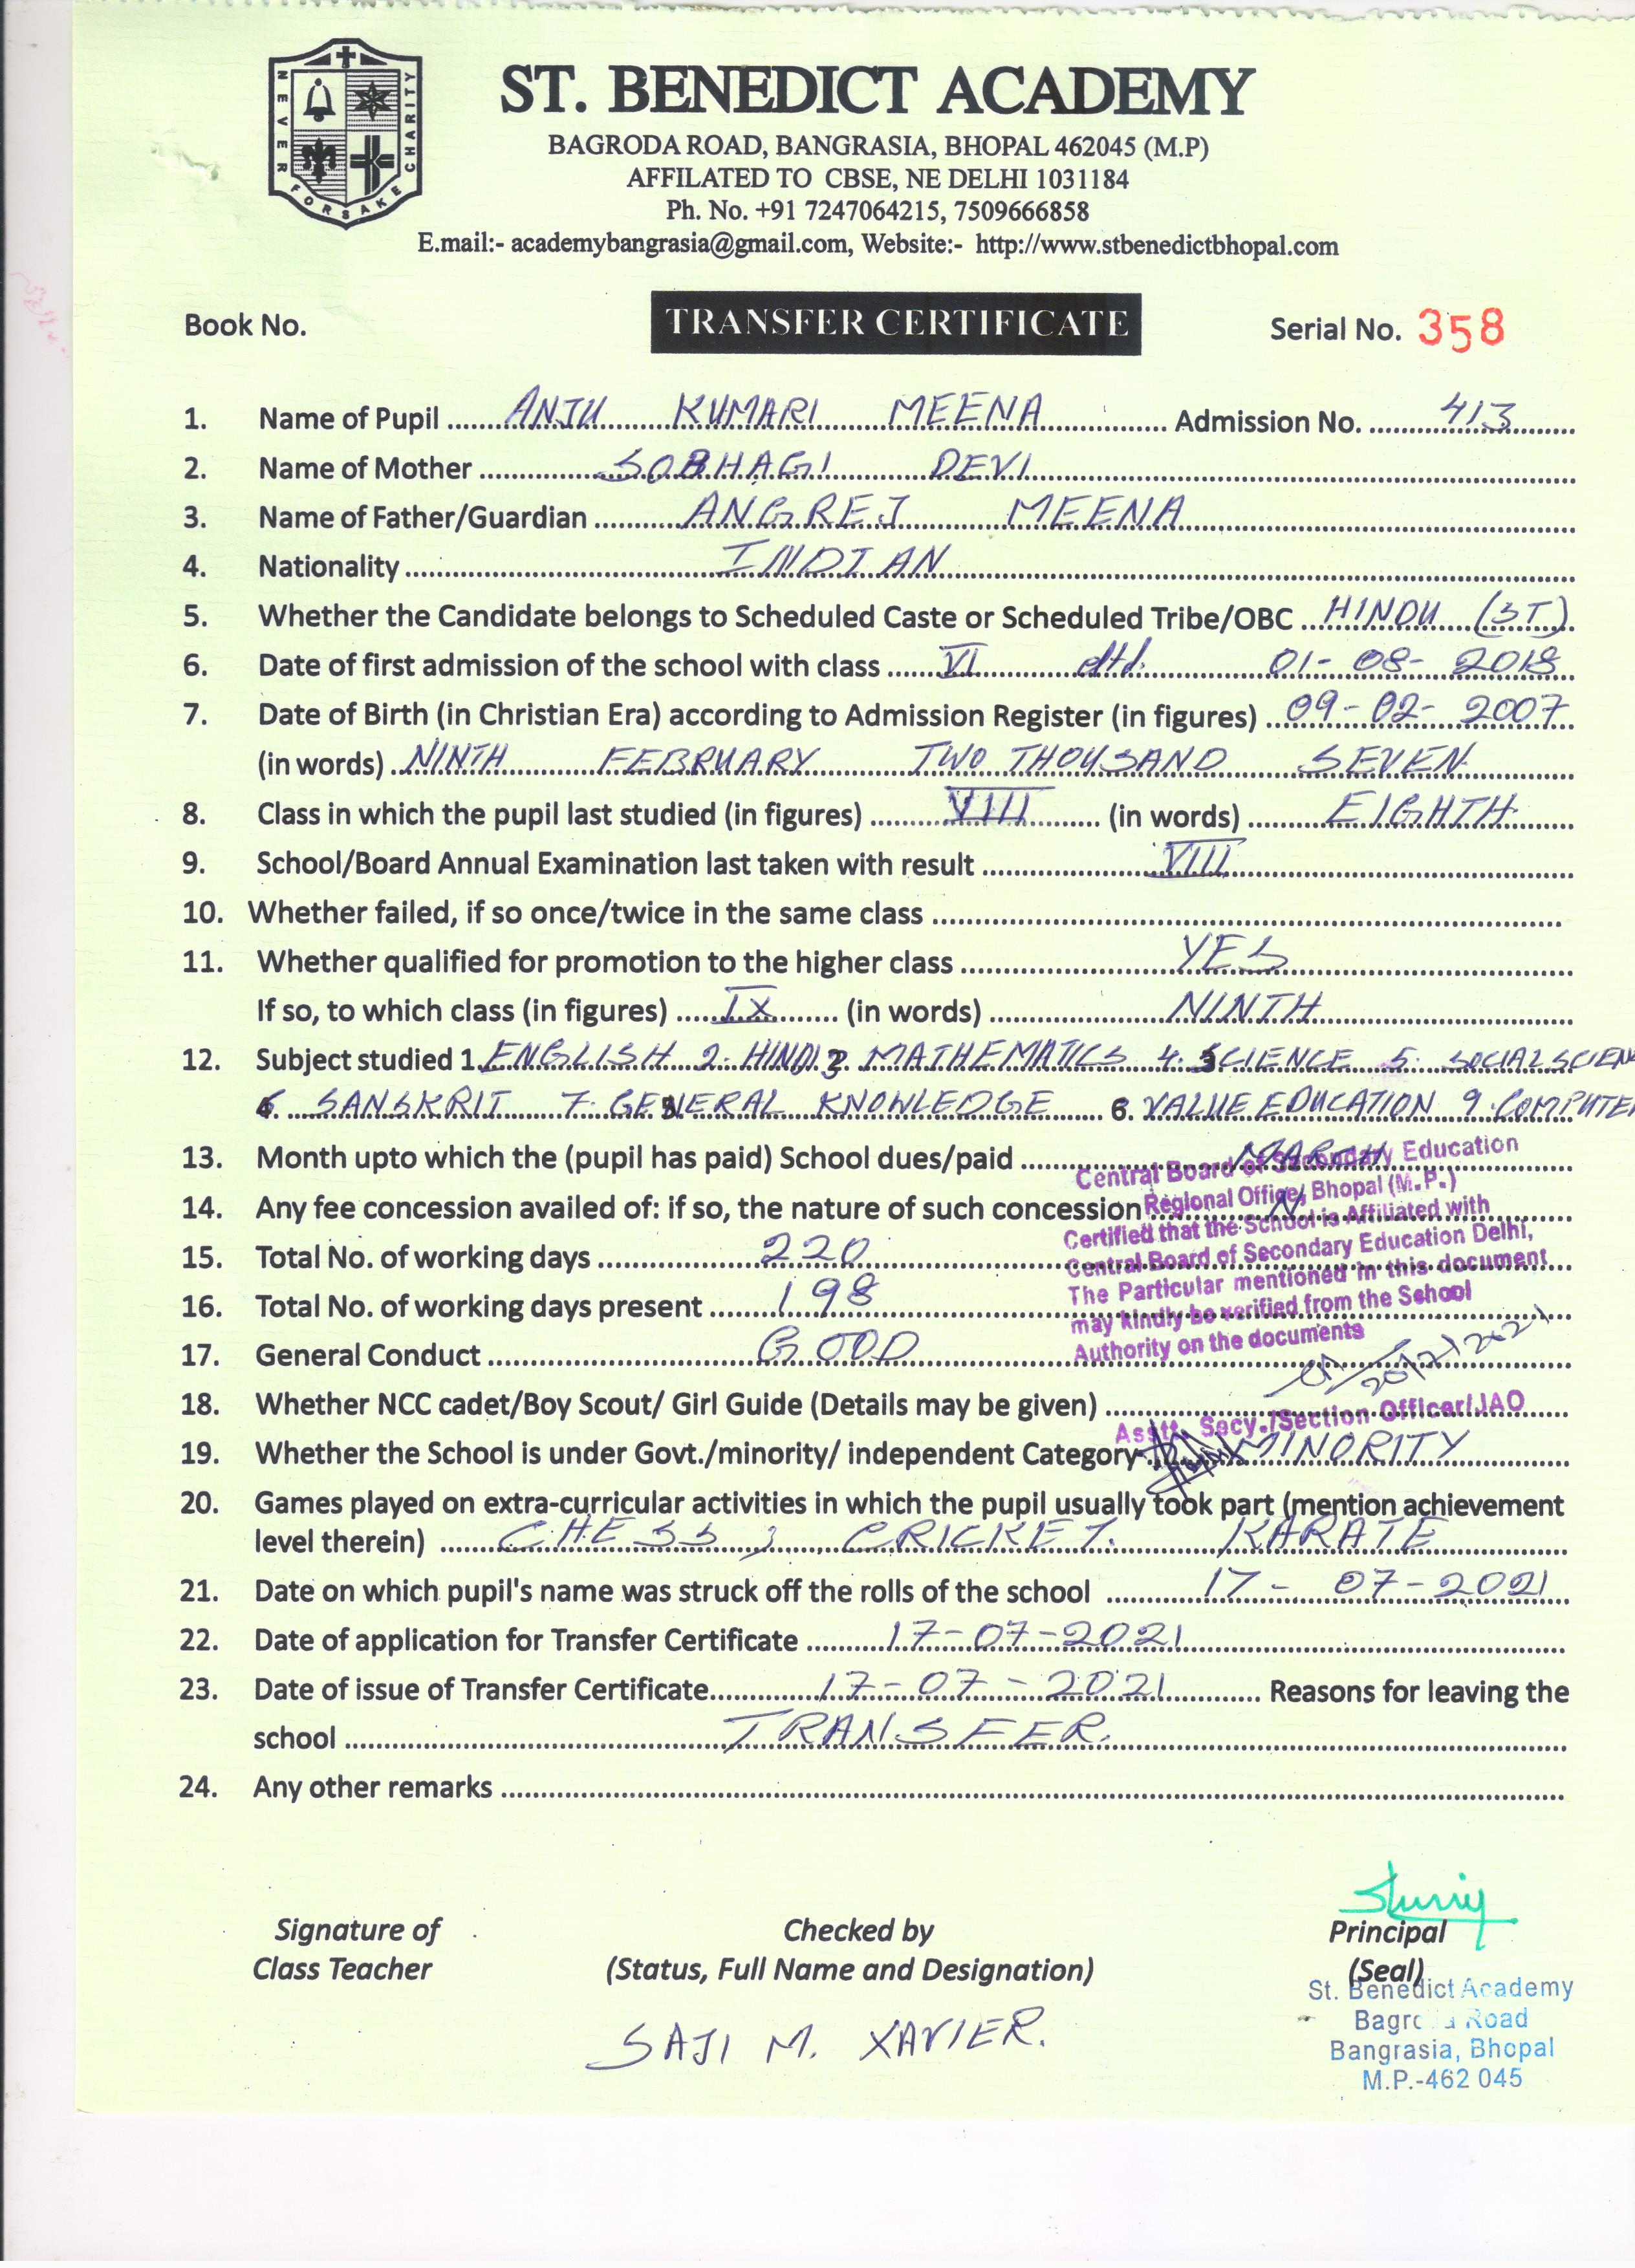 NEVER FORSAKE CHARITY
ST. BENEDICT ACADEMY
BAGRODA ROAD, BANGRASIA, BHOPAL 462045 (M.P)
AFFILATED TO CBSE, NE DELHI 1031184
Ph. No. +91 7247064215, 7509666858
E.mail:- academybangrasia@gmail.com, Website:- http://www.stbenedictbhopal.com
Book No. TRANSFER CERTIFICATE Serial No. 358
1. Name of Pupil ANJU KUMARI MEENA Admission No. 413
2. Name of Mother SOBHAGI DEVI
3. Name of Father/Guardian ANGREJ MEENA
4. Nationality INDIAN
5. Whether the Candidate belongs to Scheduled Caste or Scheduled Tribe/OBC HINDU (ST)
6. Date of first admission of the school with class VI dtd. 01-08-2018
7. Date of Birth (in Christian Era) according to Admission Register (in figures) 09-02-2007
(in words) NINTH FEBRUARY TWO THOUSAND SEVEN
8. Class in which the pupil last studied (in figures) VIII (in words) EIGHTH
9. School/Board Annual Examination last taken with result VIII
10. Whether failed, if so once/twice in the same class
11. Whether qualified for promotion to the higher class YES
If so, to which class (in figures) IX (in words) NINTH
12. Subject studied 1. ENGLISH 2. HINDI 3. MATHEMATICS 4. SCIENCE 5. SOCIAL SCIEN
6. SANSKRIT 7. GENERAL KNOWLEDGE 6. VALUE EDUCATION 9. COMPUTE
13. Month upto which the (pupil has paid) School dues/paid MARCH
14. Any fee concession availed of: if so, the nature of such concession N
15. Total No. of working days 220
16. Total No. of working days present 198
17. General Conduct GOOD
Central Board of Secondary Education
Regional Office, Bhopal (M.P.)
Certified that the School is Affiliated with
Central Board of Secondary Education Delhi,
The Particular mentioned in this document
may kindly be verified from the School
Authority on the documents
20/12/2021
Asstt. Secy./Section Officer/JAO
18. Whether NCC cadet/Boy Scout/ Girl Guide (Details may be given)
19. Whether the School is under Govt./minority/ independent Category MINORITY
20. Games played on extra-curricular activities in which the pupil usually took part (mention achievement
level therein) CHESS, CRICKET. KARATE
21. Date on which pupil's name was struck off the rolls of the school 17-07-2021
22. Date of application for Transfer Certificate 17-07-2021
23. Date of issue of Transfer Certificate 17-07-2021 Reasons for leaving the
school TRANSFER.
24. Any other remarks
Signature of Checked by Principal
Class Teacher (Status, Full Name and Designation) (Seal)
SAJI M. XAVIER.
St. Benedict Academy
Road
Bangrasia, Bhopal
M.P.-462 045